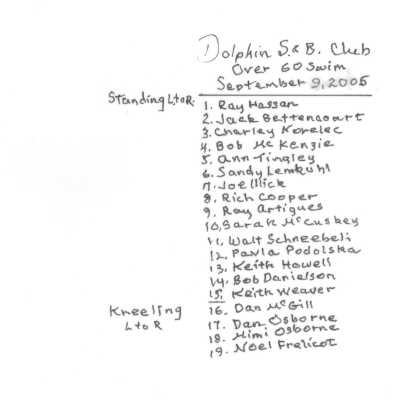 Dolphin S. & B. Club
Over 60 Swim
September 9, 2005
Standing L to R:
1. Ray Hassan
2. Jack Bettencourt
3. Charley Korelec
4. Bob McKenzie
5. Ann Tingley
6. Sandy Lemkuhl
7. Joe Illick
8. Rich Cooper
9. Ray Artigues
10. Sarah McCuskey
11. Walt Schneebeli
12. Pavla Podolska
13. Keith Howell
14. Bob Danielson
15. Keith Weaver
Kneeling
L to R
16. Dan McGill
17. Dan Osborne
18. Mimi Osborne
19. Noel Frelicot